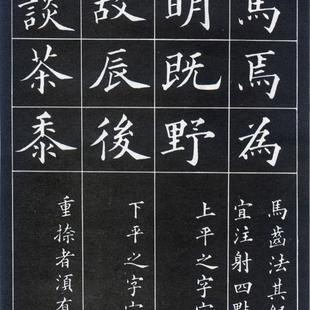 馬焉為
馬齒法其
宜注射四點
明既野
上平之字
故辰後
下平之字
談茶黍
重捺者須有